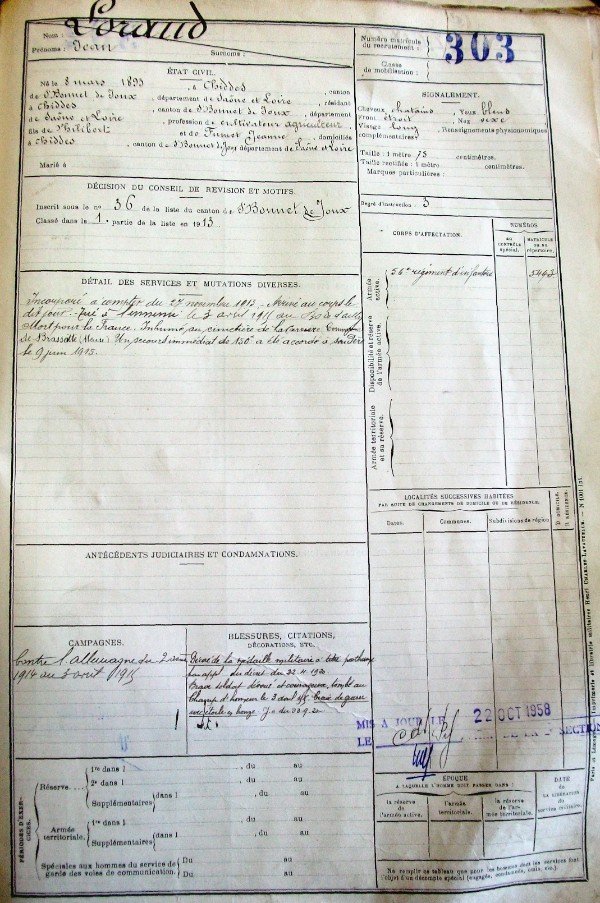 Nom : Loraud
Prénoms : Jean Surnoms :
Numéro matricule
du recrutement : 303
Classe
de mobilisation :
ÉTAT CIVIL.
Né le 8 mars 1893, à Chiddes, canton
de St Bonnet de Joux, département de Saône et Loire, résidant
à Chiddes, canton de St Bonnet de Joux, département
de Saône et Loire, profession de cultivateur agriculteur,
fils de Philibert et de Furnet Jeanne, domiciliés
à Chiddes, canton de St Bonnet de Joux département de Saône et Loire
Marié à
SIGNALEMENT.
Cheveux chatains Yeux bleus
Front étroit, Nez vexe
Visage long, Renseignements physionomiques
complémentaires :
Taille : 1 mètre 75 centimètres.
Taille rectifiée : 1 mètre centimètres.
Marques particulières :
Degré d'instruction : 3
DÉCISION DU CONSEIL DE REVISION ET MOTIFS.
Inscrit sous le no 36 de la liste du canton de St Bonnet de Joux
Classé dans la 1e partie de la liste en 1913
CORPS D'AFFECTATION.
NUMÉROS
AU CONTRÔLE SPÉCIAL.
MATRICULE OU AU RÉPERTOIRE.
Armée active.
56e régiment d'infanterie
Disponibilité et réserve de l'armée active.
Armée territoriale et sa réserve.
DÉTAIL DES SERVICES ET MUTATIONS DIVERSES.
Incorporé à compter du 27 novembre 1913. Arrivé au corps le
dit jour. Tué à l'ennemi le 3 avril 1915 au Bois d'ailly
Mort pour la France. Inhumé au cimetière de la carrière, Commune
de Brasseitte (Meuse). Un secours immédiat de 150f a été accordé à son Père
le 9 juin 1915.
LOCALITÉS SUCCESSIVES HABITÉES
PAR SUITE DE CHANGEMENTS DE DOMICILE OU DE RÉSIDENCE.
Dates. Communes. Subdivisions de région. D. DOMICILE. R. RÉSIDENCE.
ANTÉCÉDENTS JUDICIAIRES ET CONDAMNATIONS.
CAMPAGNES.
Contre l'allemagne du 2 août
1914 au 3 avril 1915
BLESSURES, CITATIONS,
DÉCORATIONS, ETC.
Décoré de la médaille militaire à titre posthume
par appl. du décret du 22.11.1920
Brave soldat dévoué et courageux, tombé au
Champ d'honneur le 3 avril 1915. Croix de guerre
avec étoile de bronze. J.o du 20.9.20
MIS A JOUR LE 22 OCT 1958
LE SECTION
PÉRIODES D'EXERCICES.
Réserve
1re dans l , du au
2e dans l , du au
Supplémentaires dans l , du au
Armée territoriale.
1re dans l , du au
Supplémentaires dans l , du au
Spéciales aux hommes du service de
garde des voies de communication.
Du au
Du au
ÉPOQUE
A LAQUELLE L'HOMME DOIT PASSER DANS :
la réserve de l'armée active.
l'armée territoriale.
la réserve de l'armée territoriale.
DATE
DE LA LIBÉRATION
DU SERVICE MILITAIRE.
Ne remplir ce tableau que pour les hommes dont les services font
l'objet d'un décompte spécial (engagés, condamnés, omis, etc.).
Paris et Limoges. — Imprimerie et librairie militaires Henri CHARLES-LAVAUZELLE.